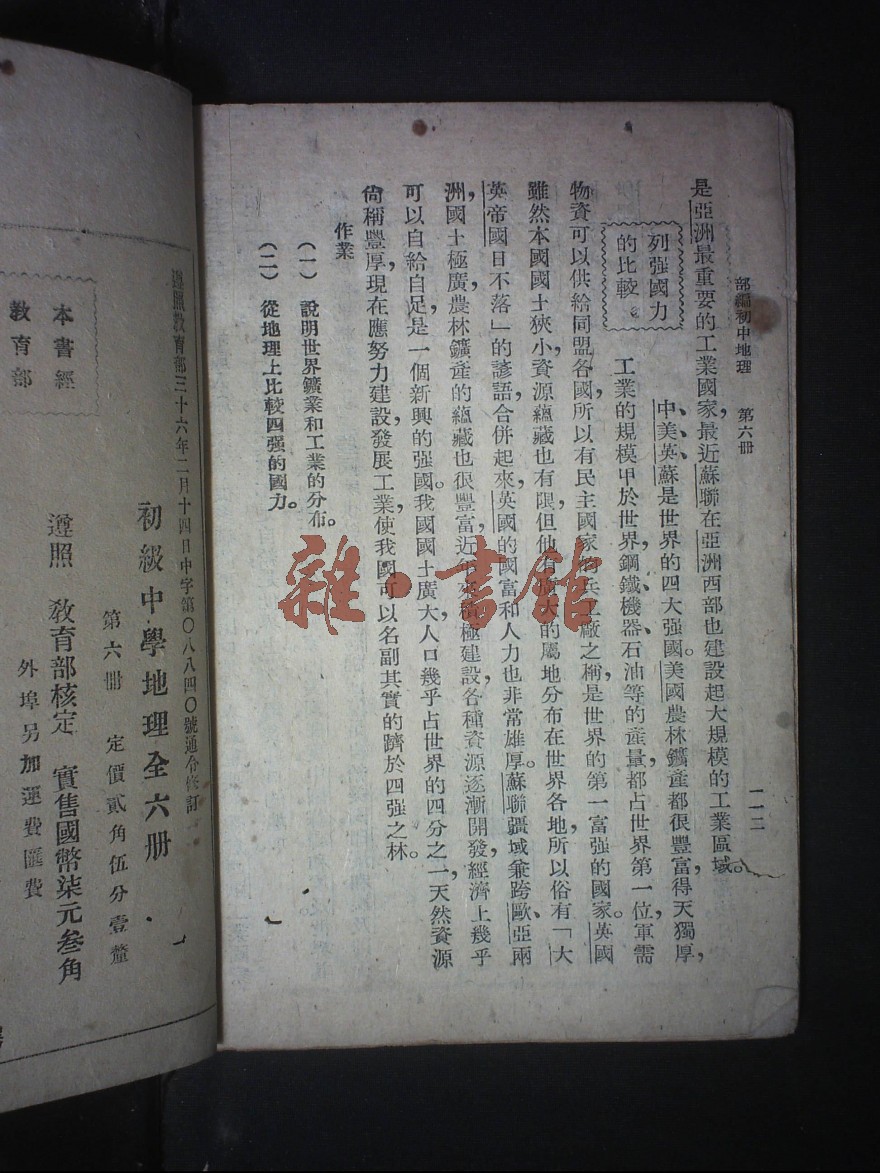 部編初中地理 第六冊
一一二
是亞洲最重要的工業國家，最近蘇聯在亞洲西部也建設起大規模的工業區域。
列强國力
的比較。
中、美、英、蘇是世界的四大强國。美國農林鑛產都很豐富，得天獨厚，
工業的規模甲於世界，鋼鐵、機器、石油等的產量都占世界第一位，軍需
物資可以供給同盟各國，所以有民主國家兵工廠之稱，是世界的第一富强的國家。英國
雖然本國國土狹小，資源蘊藏也有限，但他有大的屬地分布在世界各地，所以俗有「大
英帝國日不落」的諺語，合併起來，英國的國富和人力也非常雄厚。蘇聯疆域兼跨歐、亞兩
洲，國土極廣，農林鑛產的蘊藏也很豐富，近來積極建設，各種資源逐漸開發，經濟上幾乎
可以自給自足，是一個新興的强國。我國國土廣大，人口幾乎占世界的四分之一，天然資源
尙稱豐厚，現在應努力建設，發展工業，使我國可以名副其實的躋於四强之林。
作業
(一) 說明世界鑛業和工業的分布。
(二) 從地理上比較四强的國力。
遵照教育部三十六年二月十四日中字第〇八八四〇號通令修訂
初級中學地理全六冊
第六冊 定價貳角伍分壹釐
遵照 教育部核定 實售國幣柒元叁角
外埠另加運費匯費
本書經
教育部
雜·書館